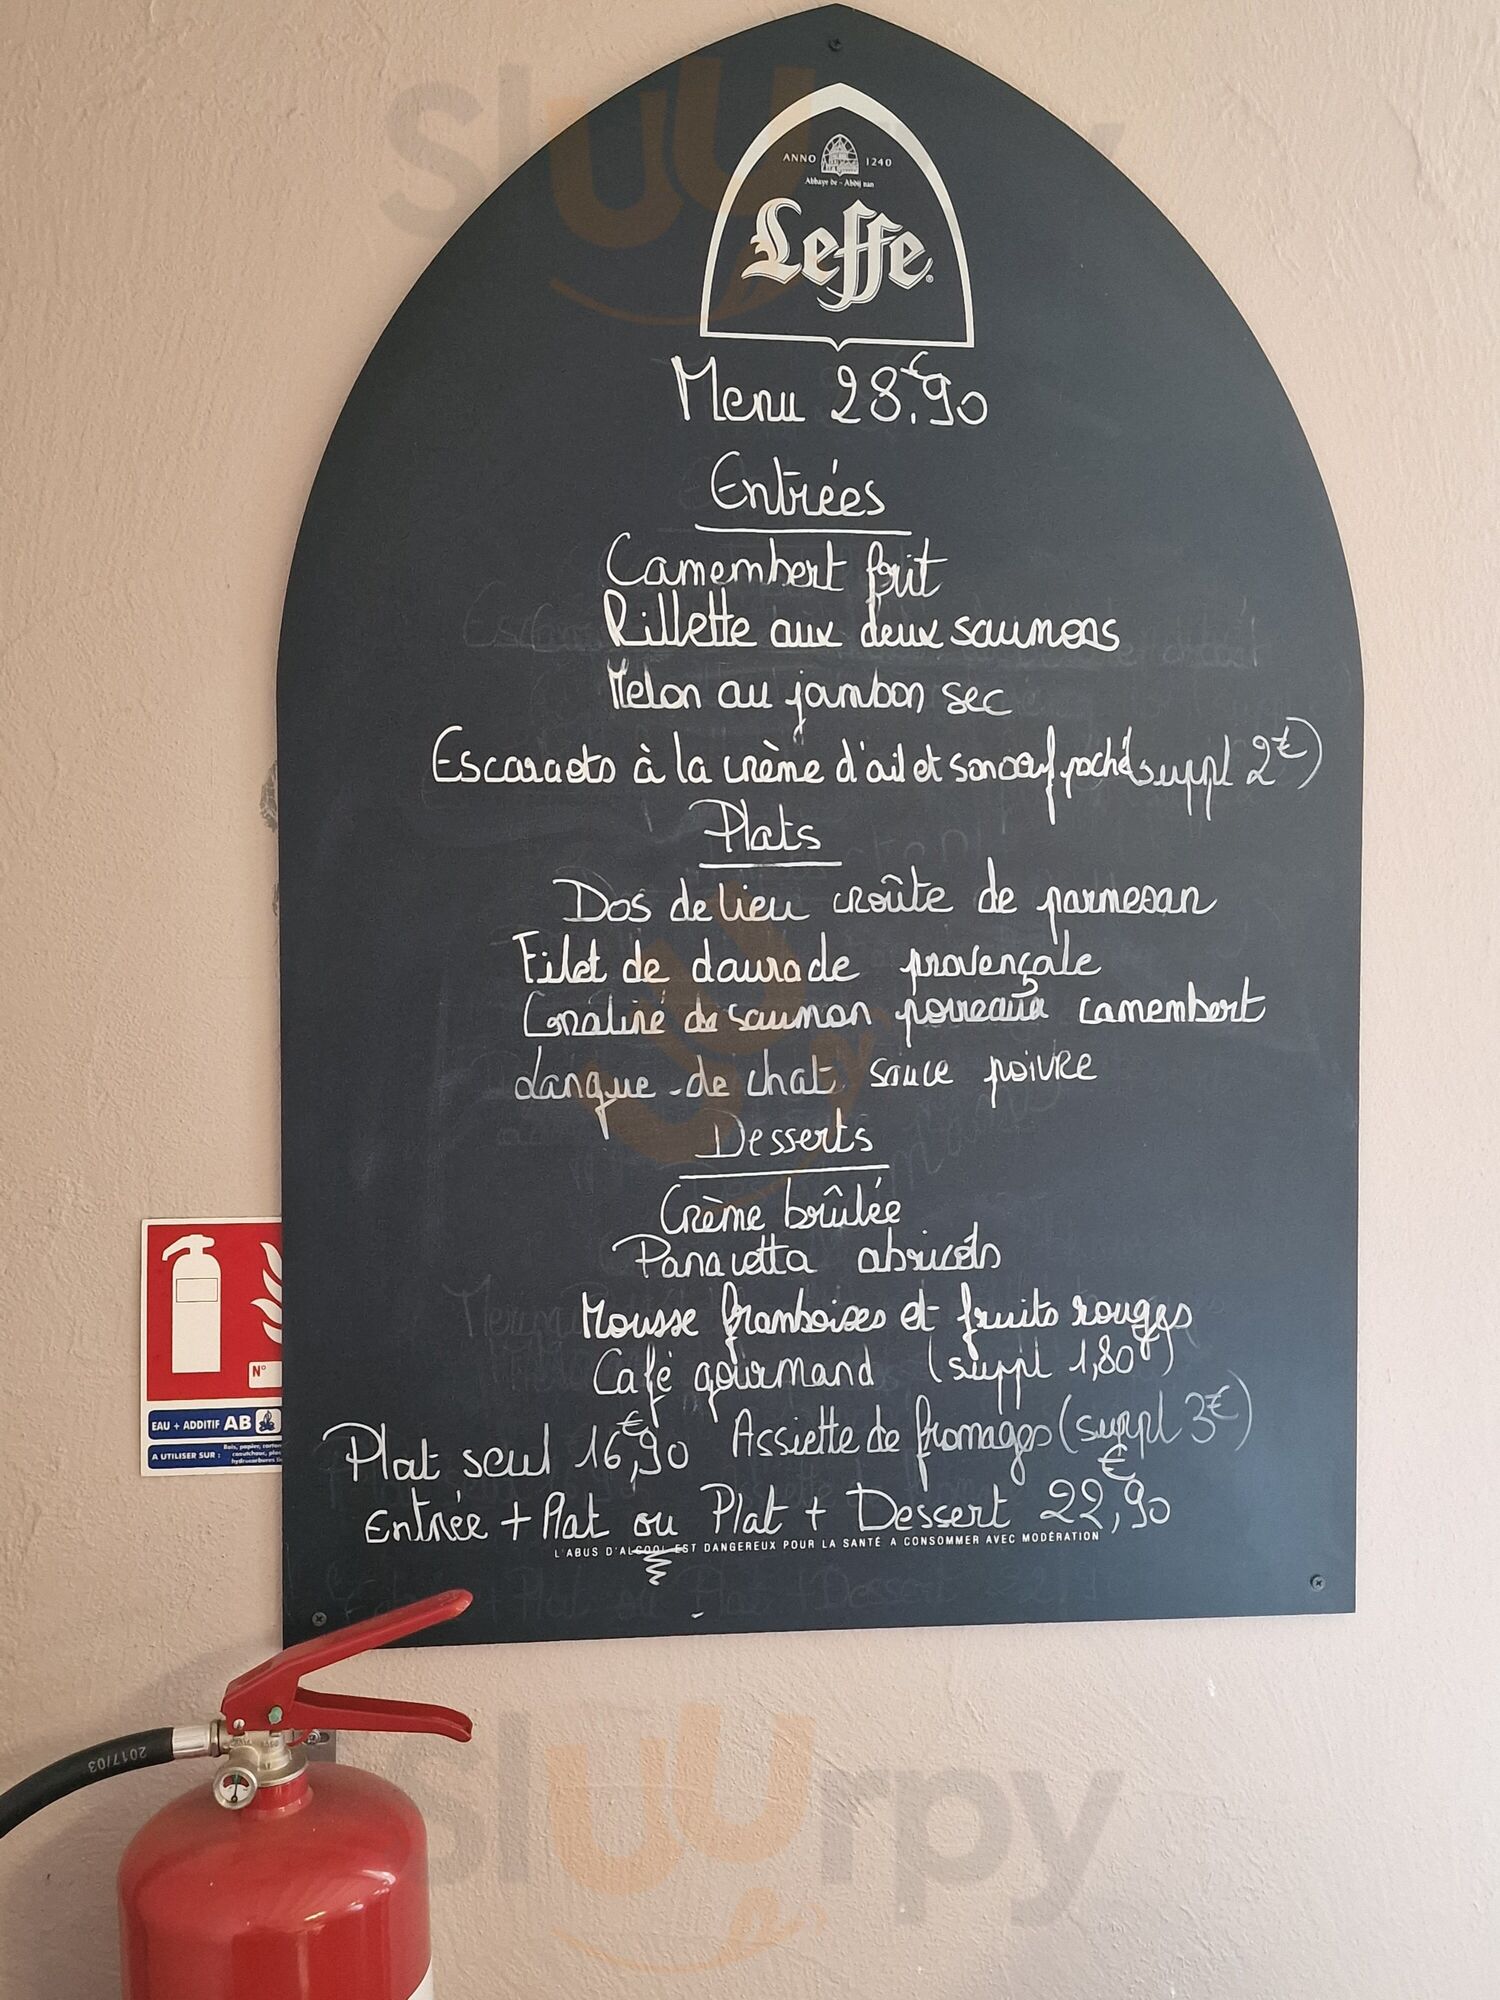 sluurpy
ANNO 1240
Abbaye de - Abdij van
Leffe
Menu 28.€90
Entrées
Camembert frit
Rillette aux deux saumons
Melon au jambon sec
Escargots à la crème d'ail et son oeuf poché (suppl 2€)
Plats
Dos de lieu croûte de parmesan
Filet de daurade provençale
de saumon poireaux camembert
Langue de chat sauce poivre
Desserts
Crème brûlée
Panacotta abricots
Mousse framboises et fruits rouges
Café gourmand (suppl 1,80€)
Assiette de fromages (suppl 3€)
Plat seul 16,€90
Entrée + Plat ou Plat + Dessert 22,€90
L'ABUS D'ALCOOL EST DANGEREUX POUR LA SANTÉ A CONSOMMER AVEC MODÉRATION
N°
EAU + ADDITIF AB
A UTILISER SUR :
Bois, papier, carton
caoutchouc, plas
hydrocarbures li
2017/03
sluurpy